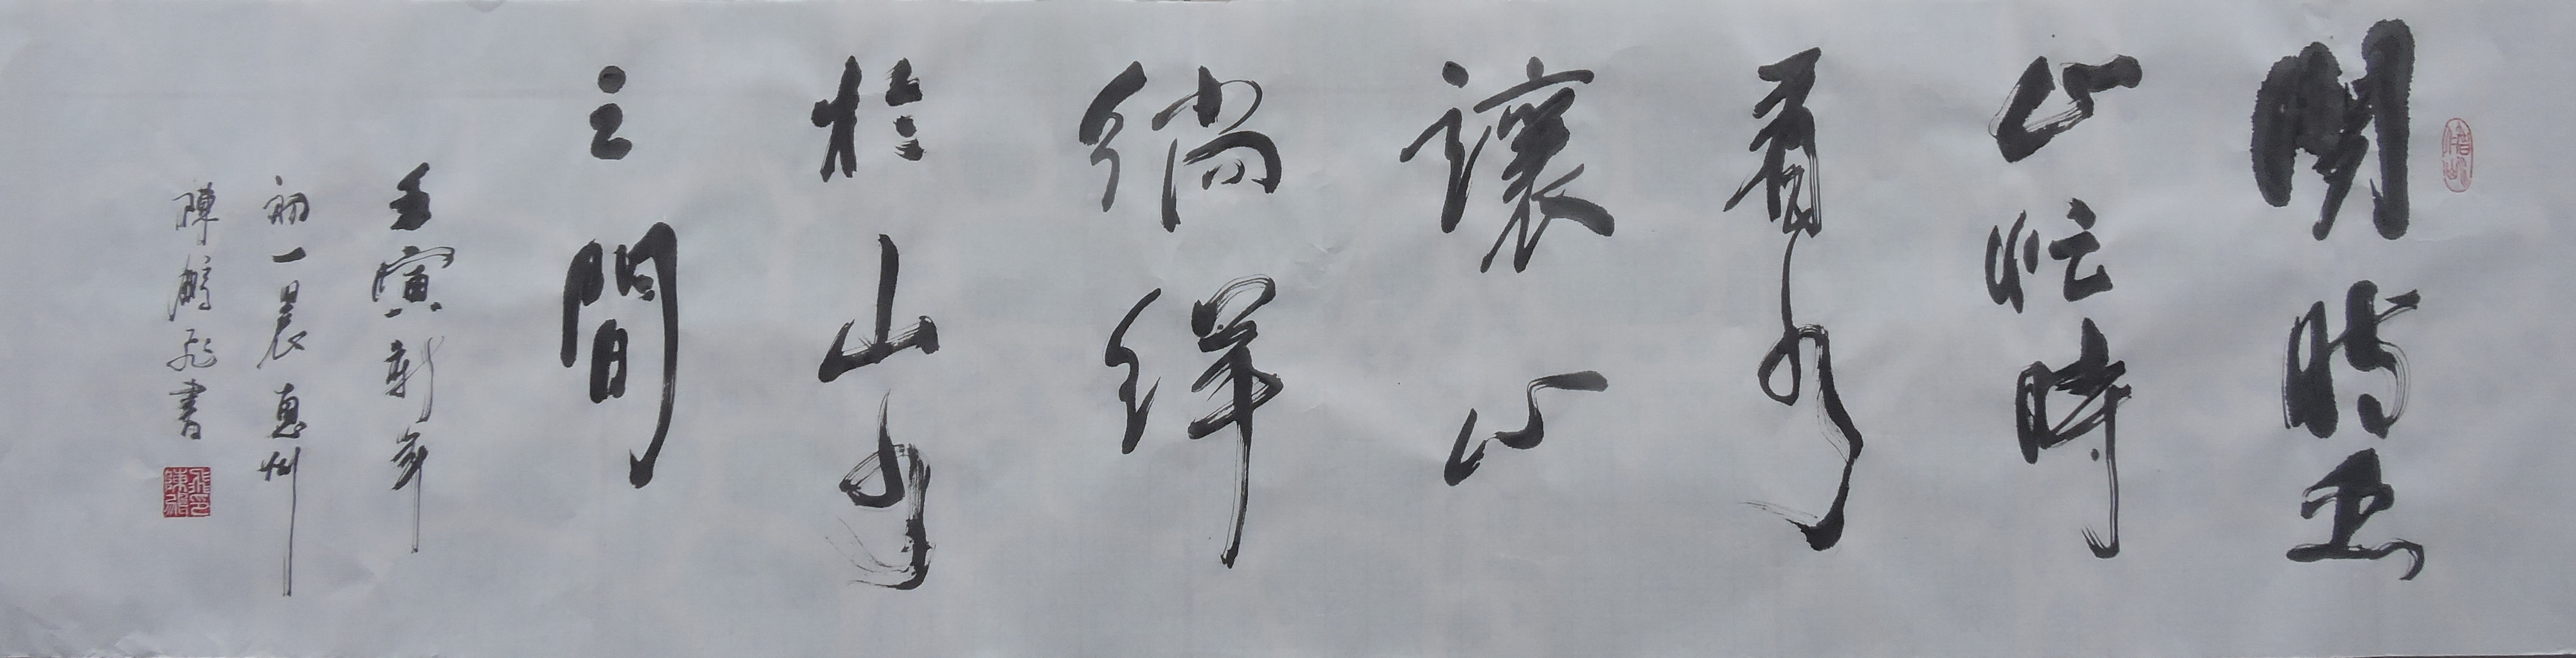 閑時
山忙時
看水
讓心
徜徉
於山水
之間
壬寅新年
初一晨惠州
陳鵬飛書